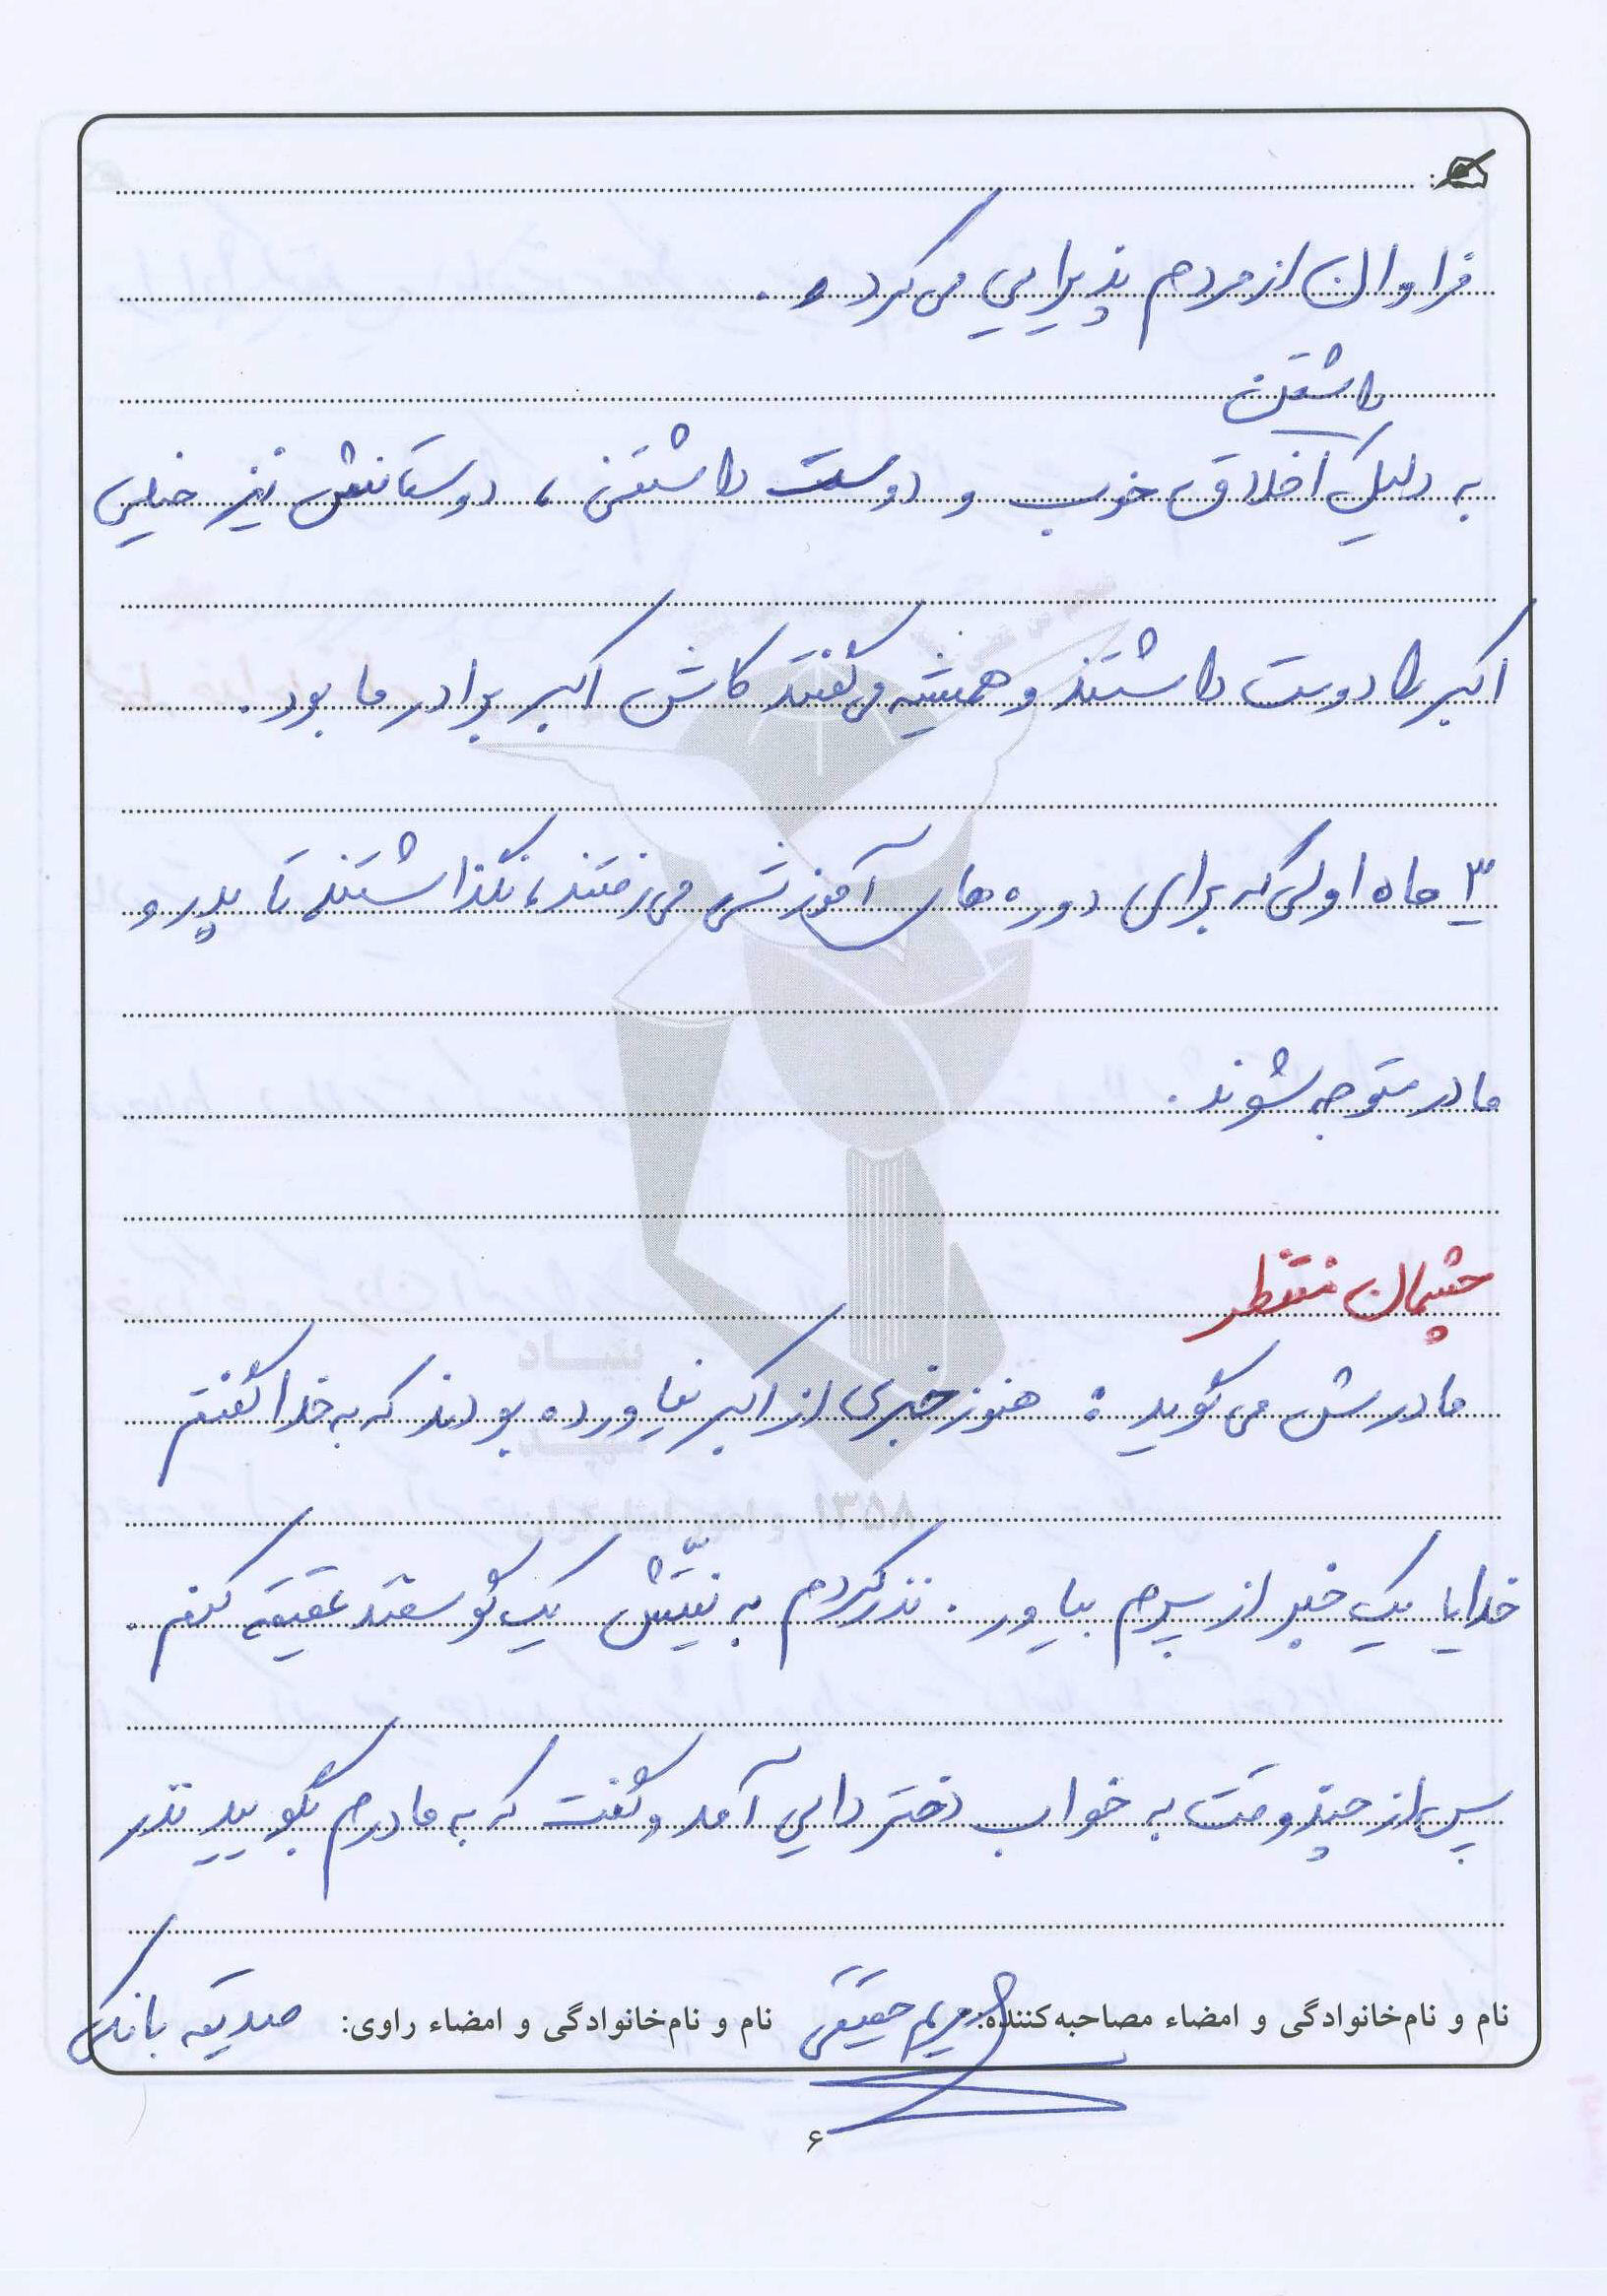 فراوان از مردم پذیرایی می‌کرد.
داشتن
به دلیل اخلاق خوب و دوست داشتنی، دوستانش نیز خیلی
اکبر را دوست داشتند و همیشه می‌گفتند کاش اکبر برادر ما بود.
۳ ماه اولی که برای دوره های آموزشی می‌رفتند، نگذاشتند تا پدر و
مادر متوجه شوند.
چشمان منتظر
مادرش می‌گوید: هنوز خبری از اکبر نیاورده بودند که به خدا گفتم
خدایا یک خبر از پسرم بیاور. نذر کردم به نیّتش یک گوسفند عقیقه کنم.
پس از چند وقت به خواب دختر دایی آمد و گفت که به مادرم بگویید نذر
نام و نام‌خانوادگی و امضاء مصاحبه‌کننده: مریم حقیقی نام و نام‌خانوادگی و امضاء راوی: صدیقه بانک
۶
بنیاد
شهید
و امور ایثارگران
۱۳۵۸